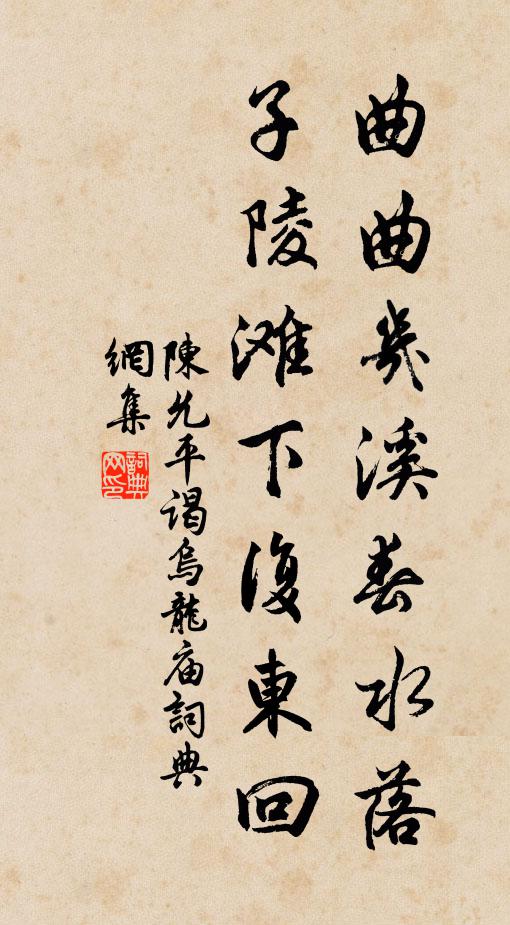 曲曲幾溪春水落
子陵滩下復東回
陳允平謁烏龍庙詞典
網集
詞典
网印